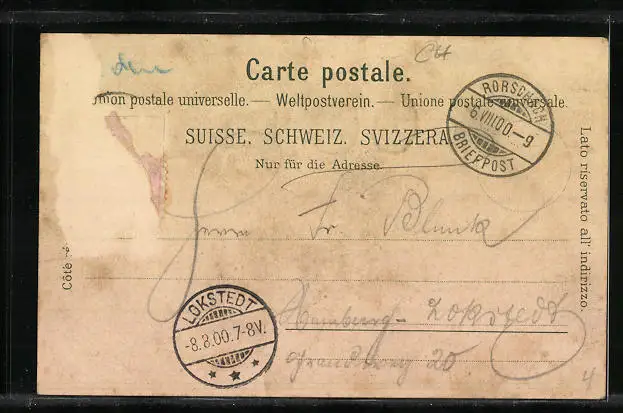 CH
Carte postale.
nion postale universelle. — Weltpostverein. — Unione postale universale.
SUISSE. SCHWEIZ. SVIZZERA.
Nur für die Adresse.
RORSCHACH
6.VIII.00.-9
BRIEFPOST
Lato riservato all' indirizzo.
Côté ré
Herrn Fr. Blunk
LOKSTEDT
-8.8.00.7-8V.
Hamburg-Lokstedt
Grandweg 20
4